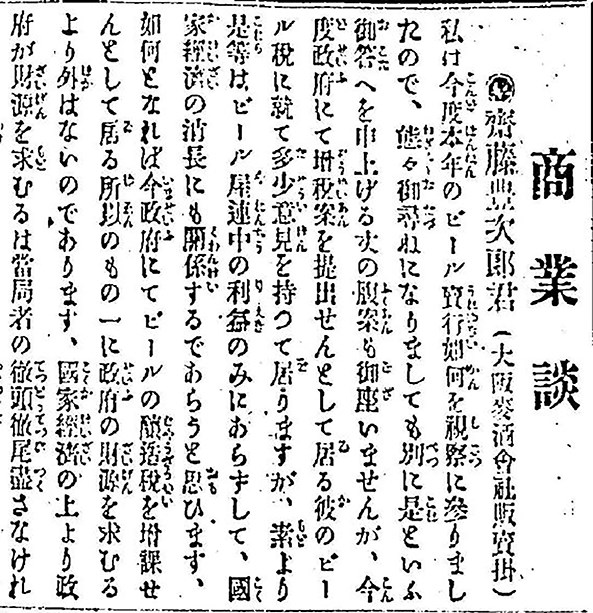 商業談
齋藤豊次郎君（大阪麥酒會社販賣掛）
私は今度本年のビール賣行如何を視察に參りまし
たので、態々御尋ねになりましても別に是といふ
御答へを申上げる次の腹案も御座いませんが、今
度政府にて增税案を提出せんとして居る彼のビー
ル税に就て多少意見を持つて居りますが、素より
是等はビール屋連中の利益のみにあらずして、國
家經濟の消長にも關係するであらうと思ひます、
如何となれば今政府にてビールの釀造税を增課せ
んとして居る所以のもの一に政府の財源を求むる
より外はないのであります、國家經濟の上より政
府が財源を求むるは當局者の徹頭徹尾盡さなけれ